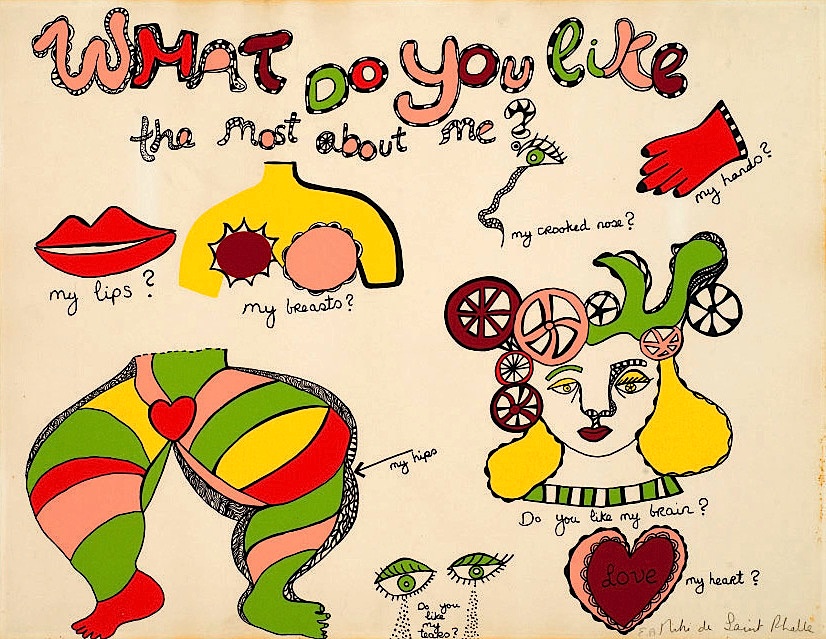 WHAT DO YOU like
the most about me?
my hands?
my crooked nose?
my lips?
my breasts?
my hips
Do you like my brain?
Do you
like
my
tears?
LOVE
my heart?
E.A Niki de Saint Phalle